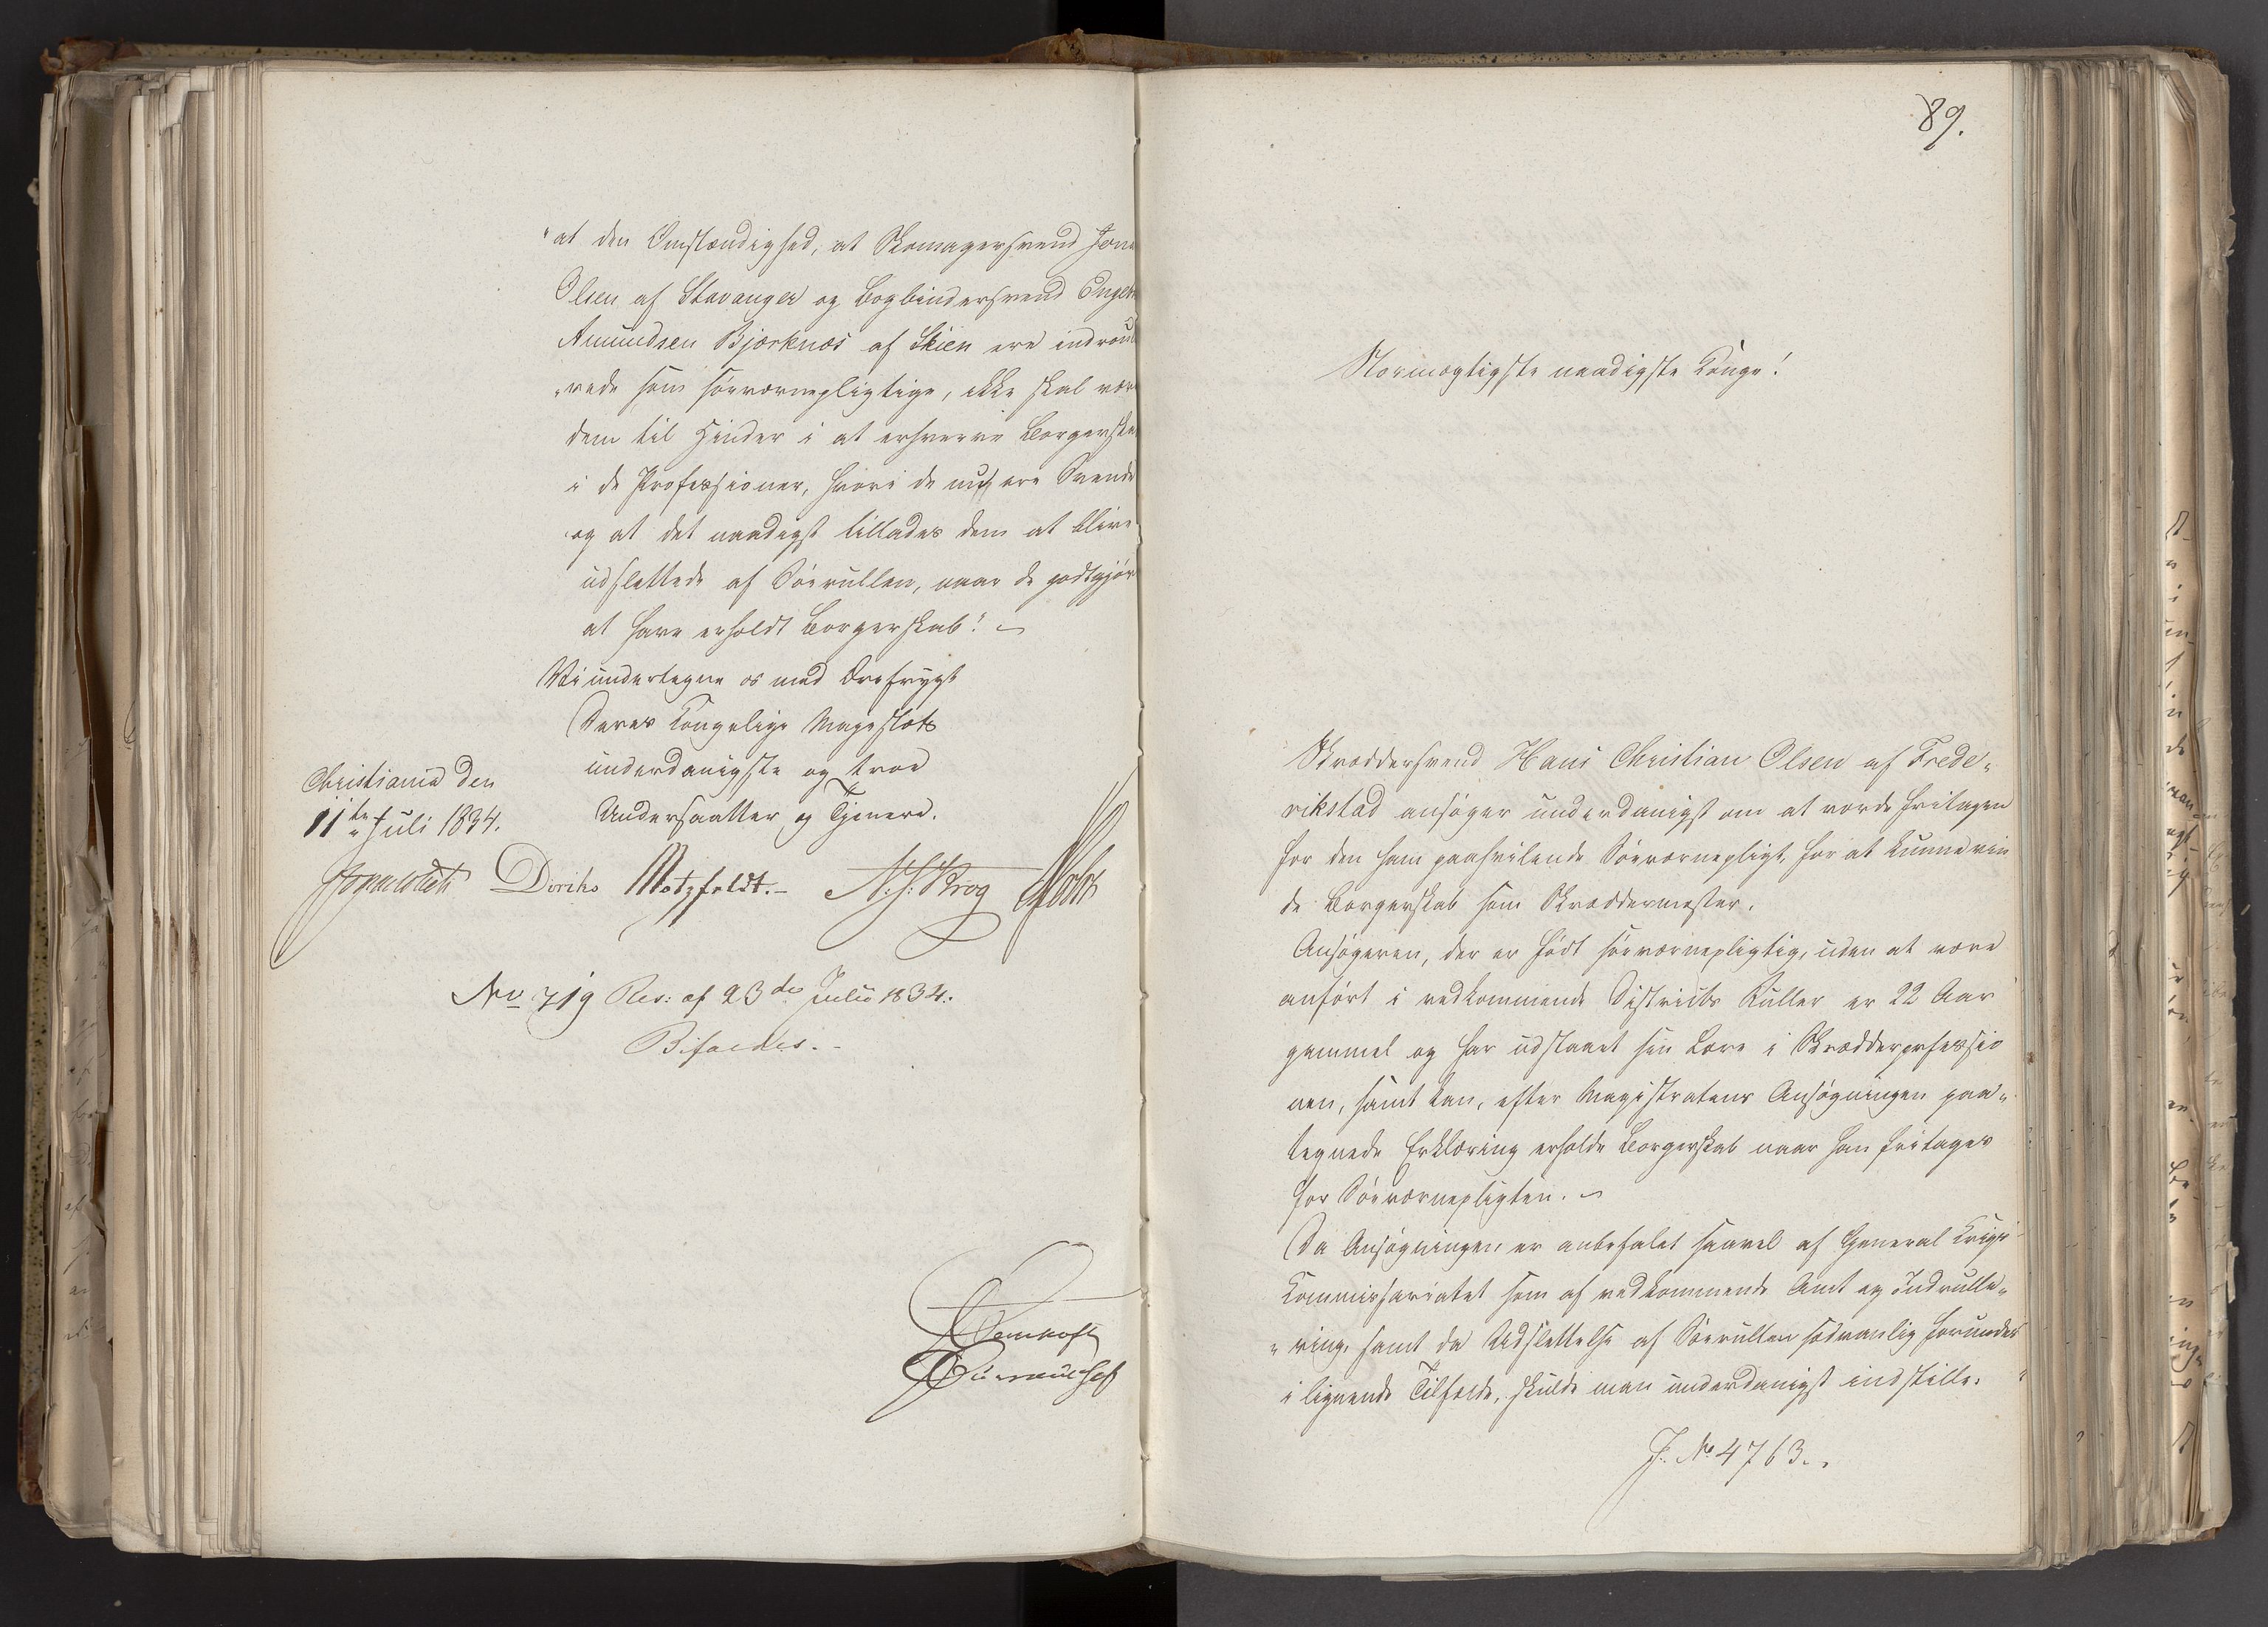 "at den Omstændighed, at Skomagersvend
Olsen af Stavanger og Bogbindersvend
Amundsen Bjørknæs af Skien ere
"rede som søeværnepligtige, ikke skal
dem til Hinder i at erhverve
i de Professioner, hvori de nu ere Svende
og at det naadigst tillades dem at blive
udslettede af Søerullen, naar de
at have erholdt Borgerskab".
Vi undertegne os med Ærefrygt
Deres Kongelige Majestæts
underdanigste og troe
Undersaatter og Tjenere.
Christiania den
11te Juli 1834.
Diriks Motzfeldt.- Krog Holst
No 719 Res: af 23de Julii 1834.
Bifaldes.-
89.
Stormægtigste naadigste Konge!
Skræddersvend Hans Christian Olsen af Frede-
rikstad ansøger underdanigst om at vorde fritagen
for den ham paahvilende Søeværnepligt, for at kunne vin
de Borgerskab som Skræddermester.
Ansøgeren, der er født søeværnepligtig, uden at være
anført i vedkommende Districts Ruller er 22 Aar
gammel og har udstaaet sin Lære i Skrædderprofessio
nen, samt kan, efter Magistratens Ansøgningen paa-
tegnede Erklæring erholde Borgerskab naar han fritages
for Søeværnepligten.
Da Ansøgningen er anbefalet saavel af General Krigs
Kommissariatet som af vedkommende Amt og Indrulle-
"ring, samt da Udslettelse af Søerullen sædvanlig forundes
i lignende Tilfælde, skulde man underdanigst indstille:
J. No 4763.